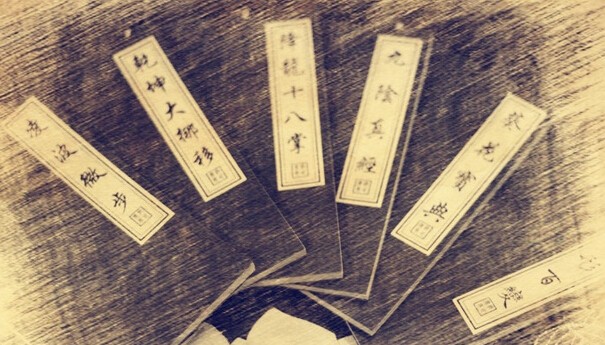 凌波微步
乾坤大挪移
降龍十八掌
九陰真經
葵花寶典
百變